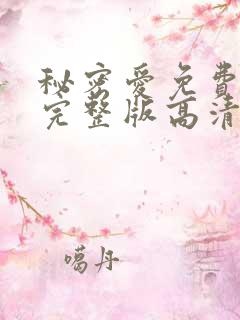 秘密爱免费
完整版高清
噶丹